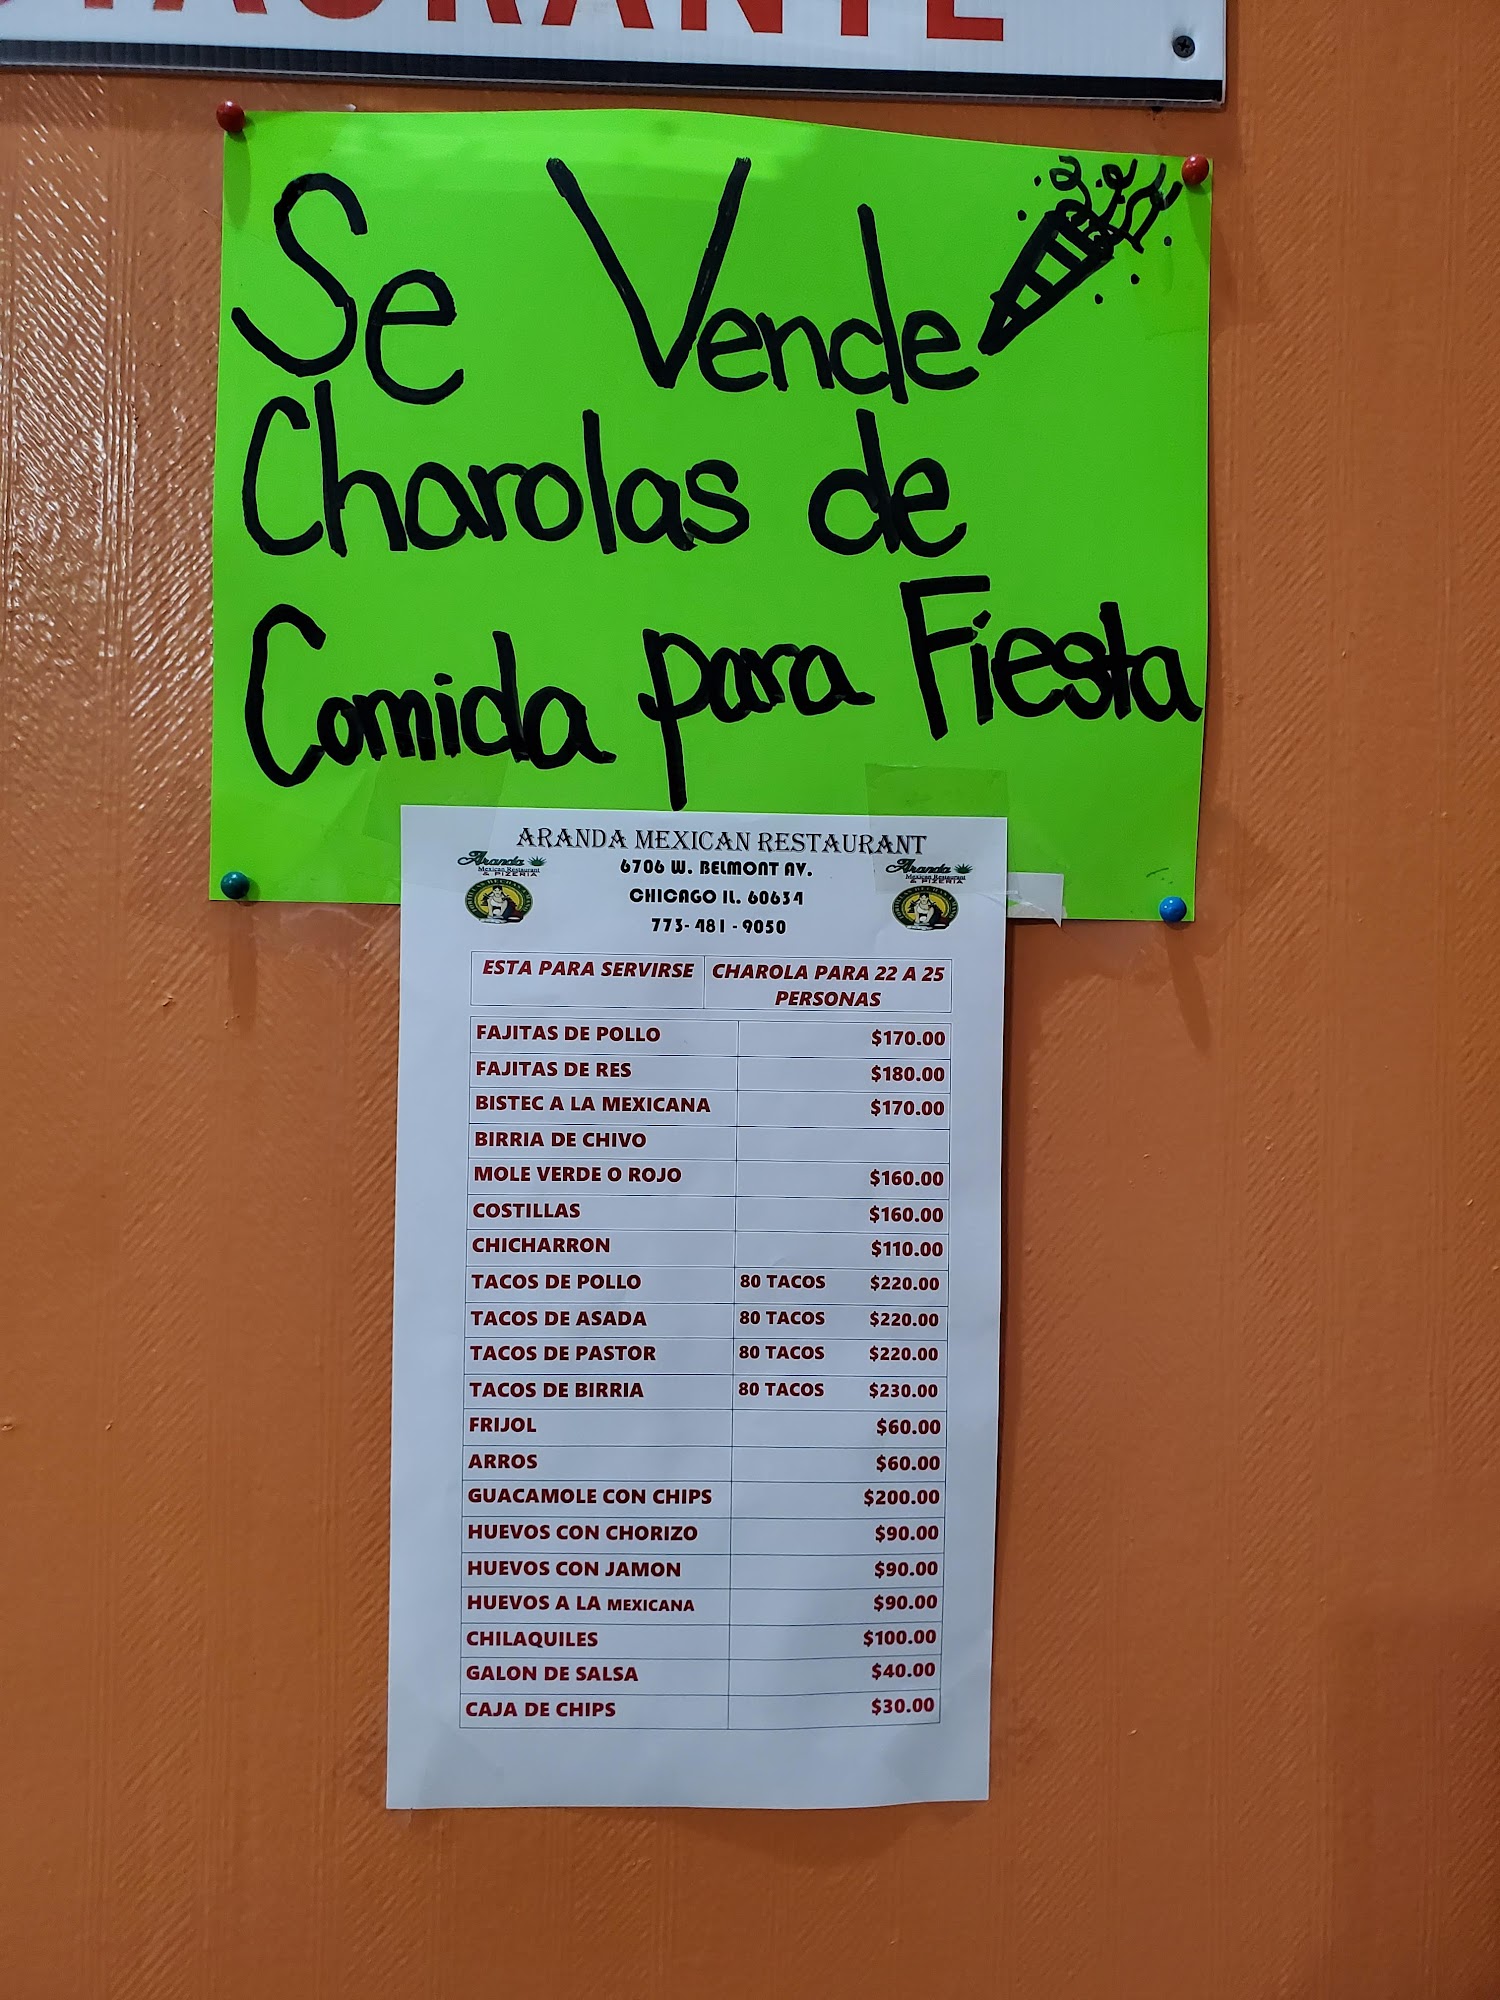 Se Vende
Charolas de
Comida para Fiesta
ARANDA MEXICAN RESTAURANT
6706 W. BELMONT AV.
CHICAGO IL. 60634
773-481-9050
Aranda
Mexican Restaurant
& PIZERIA
Aranda
Mexican Restaurant
& PIZERIA
ESTA PARA SERVIRSE CHAROLA PARA 22 A 25 PERSONAS
FAJITAS DE POLLO $170.00
FAJITAS DE RES $180.00
BISTEC A LA MEXICANA $170.00
BIRRIA DE CHIVO
MOLE VERDE O ROJO $160.00
COSTILLAS $160.00
CHICHARRON $110.00
TACOS DE POLLO 80 TACOS $220.00
TACOS DE ASADA 80 TACOS $220.00
TACOS DE PASTOR 80 TACOS $220.00
TACOS DE BIRRIA 80 TACOS $230.00
FRIJOL $60.00
ARROS $60.00
GUACAMOLE CON CHIPS $200.00
HUEVOS CON CHORIZO $90.00
HUEVOS CON JAMON $90.00
HUEVOS A LA MEXICANA $90.00
CHILAQUILES $100.00
GALON DE SALSA $40.00
CAJA DE CHIPS $30.00